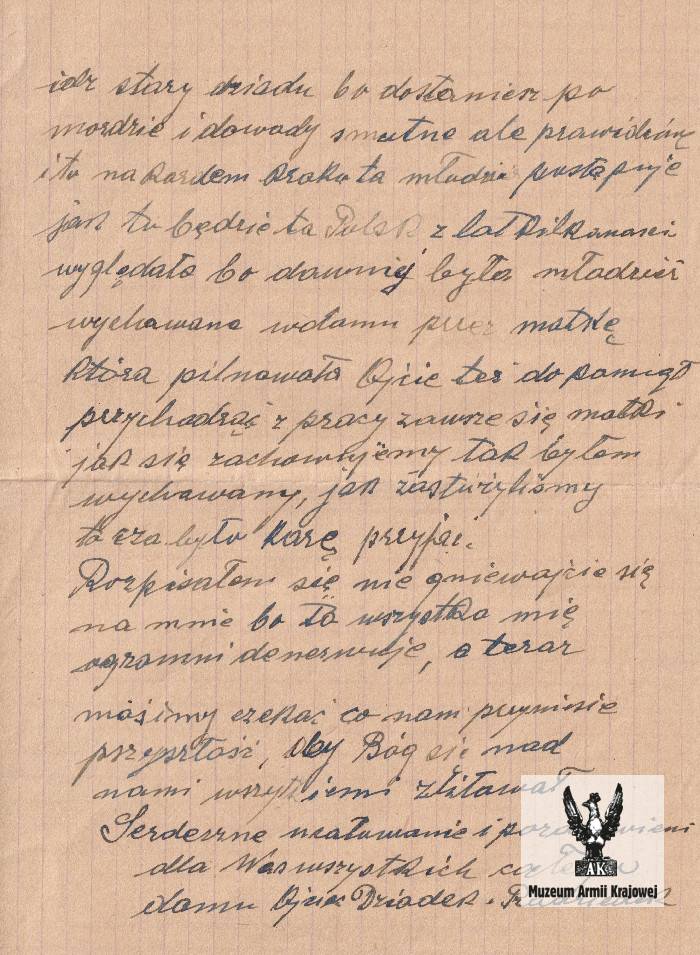 idz stary dziadu bo dostaniesz po
mordzie i dowody smutne ale prawidziwę
i to na kardem kroku ta młodzież postępuje
jak tu będzie ta Polsk z lat kilkanaści
wyglądała bo dawniej była młodzież
wychawana wdamu przez matkę
która pilnowała Ojcie też do pamiął
przychadząć z pracy zawsze się matki
jak się zachowujemy tak byłem
wychawany, jak zasłużyliśmy
to cza było karę przyjąć.
Rozpisałem się nie gniewajcie się
na mnie bo to wszystko mię
ogromni denerwuje, a teraz
mósimy czekać co nam przyniesie
przyszłość, aby Bóg się nad
nami wszystkiemi zlitował
Serdeczne ucałowanie i
dla Was wszystkich
damu Ojciec Dziadek
AK
Muzeum Armii Krajowej